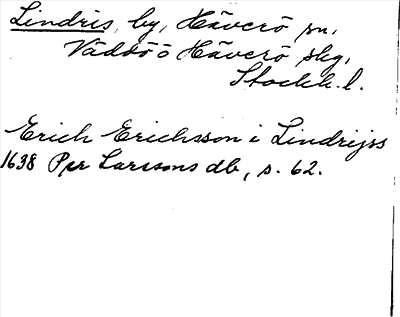 Lindris, by, Häverö sn,
Väddö o Häverö skg,
Stockh. l.
Erich Erichsson i Lindrijss
1638 Per Larssons db, s. 62.